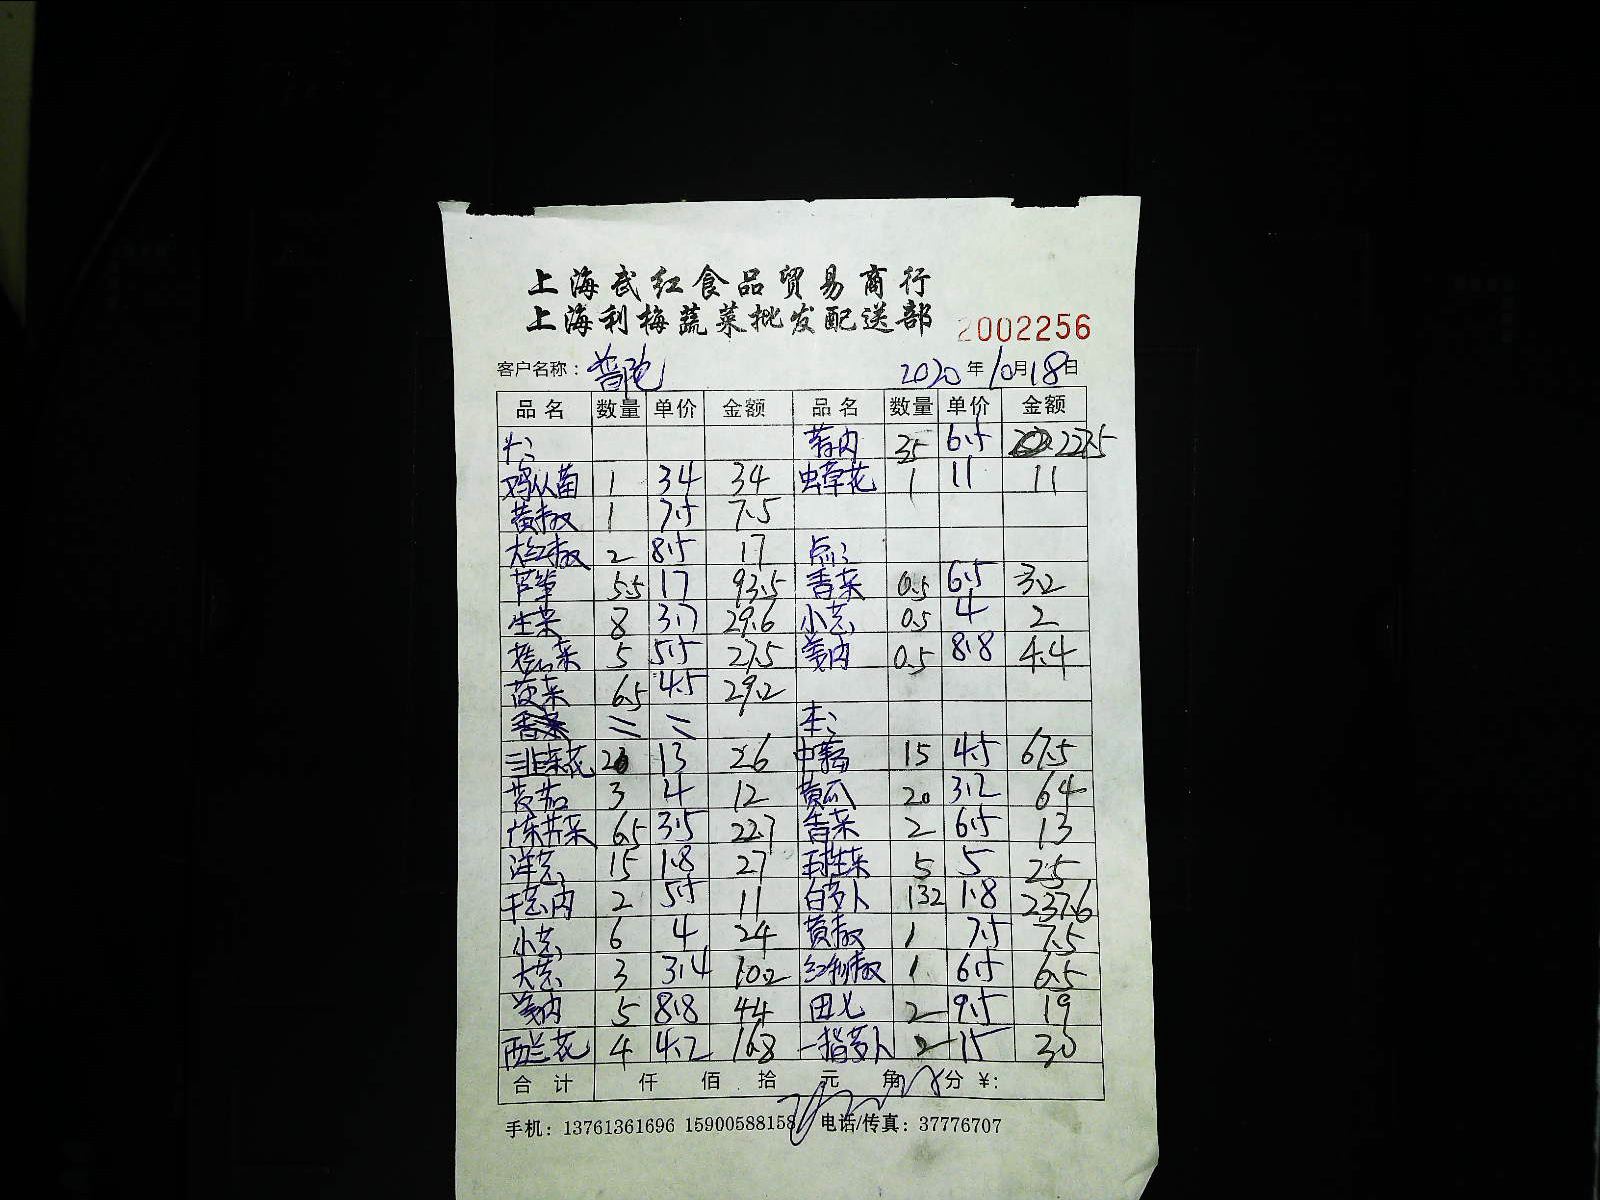 上海武红食品贸易商行
上海利梅蔬菜批发配送部 2002256
客户名称：普陀 2020年10月18日
品名 数量 单价 金额 品名 数量 单价 金额
35 6.5 227.5
1 34 34 虫草花 1 11 11
黄椒 1 7.5 7.5
大红椒 2 8.5 17 点:
芦笋 5.5 17 93.5 香菜 0.5 6.5 3.2
生菜 8 3.7 29.6 小葱 0.5 4 2
5 5.5 27.5 姜肉 0.5 8.8 4.4
菠菜 6.5 4.5 29.2
本:
韭菜花 2 13 26 15 4.5 67.5
茭茄 3 4 12 黄瓜 20 3.2 64
6.5 3.5 22.7 香菜 2 6.5 13
洋葱 15 1.8 27 球生菜 5 5 25
干葱肉 2 5.5 11 白萝卜 132 1.8 237.6
小葱 6 4 24 黄椒 1 7.5 7.5
大葱 3 3.4 10.2 红利椒 1 6.5 6.5
姜肉 5 8.8 44 2 9.5 19
西兰花 4 4.2 16.8 一指萝卜 2 15 30
合计 仟 佰 拾 元 角 分 ¥:
手机：13761361696 15900588158 电话/传真：37776707